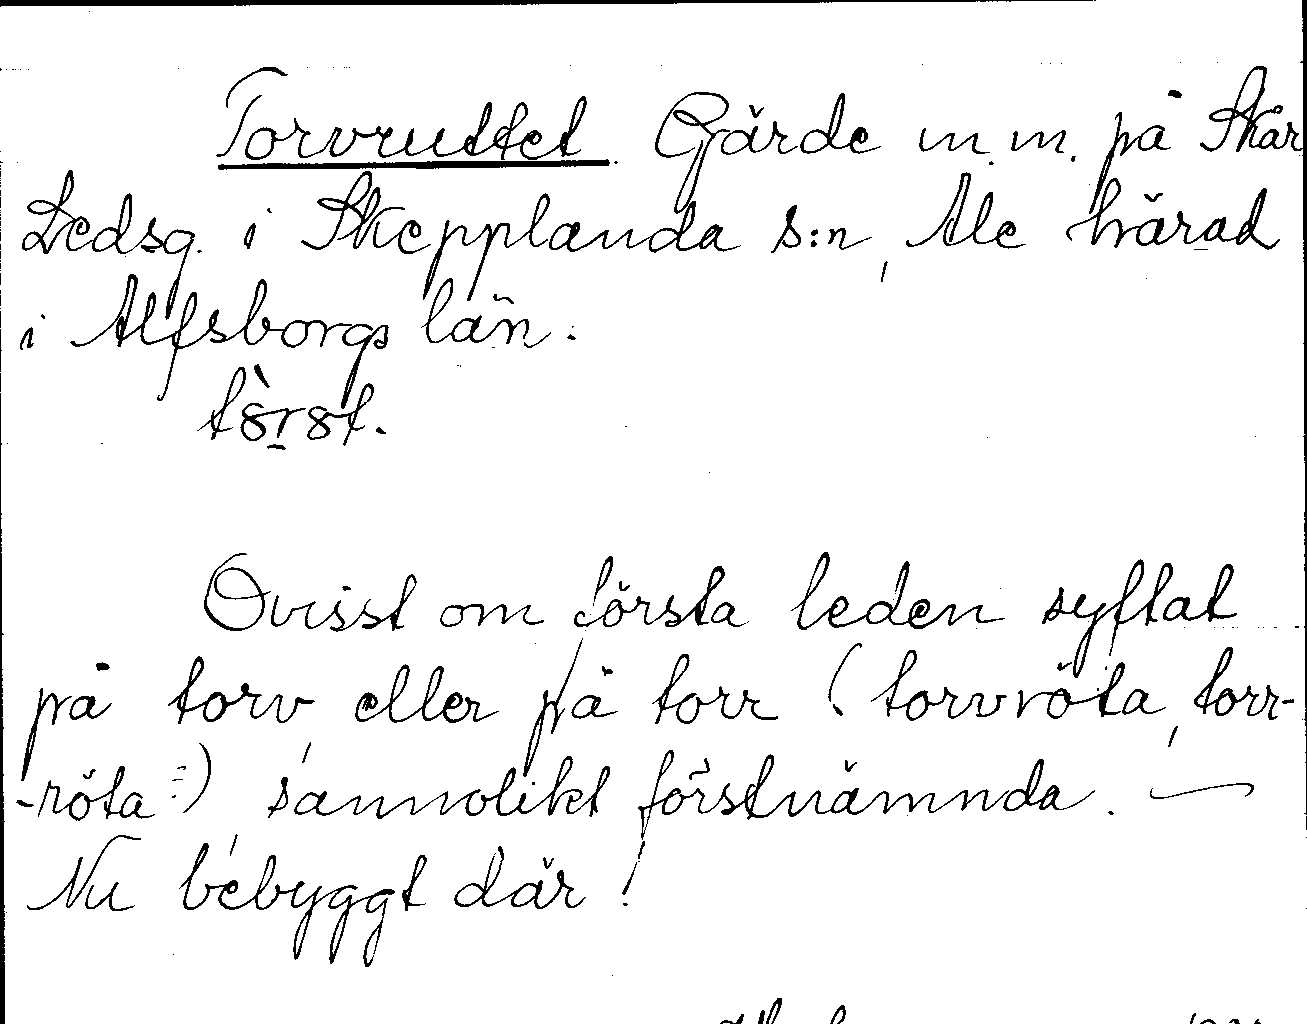 Torvruttet. Gärde m.m. på Skår
Ledsg. i Skepplanda s:n, Ale härad
i Älfsborgs län.
Ovisst om första leden syftat
på torv, eller på torr (torvröta, torr-
-röta?), sannolikt förstnämnda. —
Nu bebyggt där!